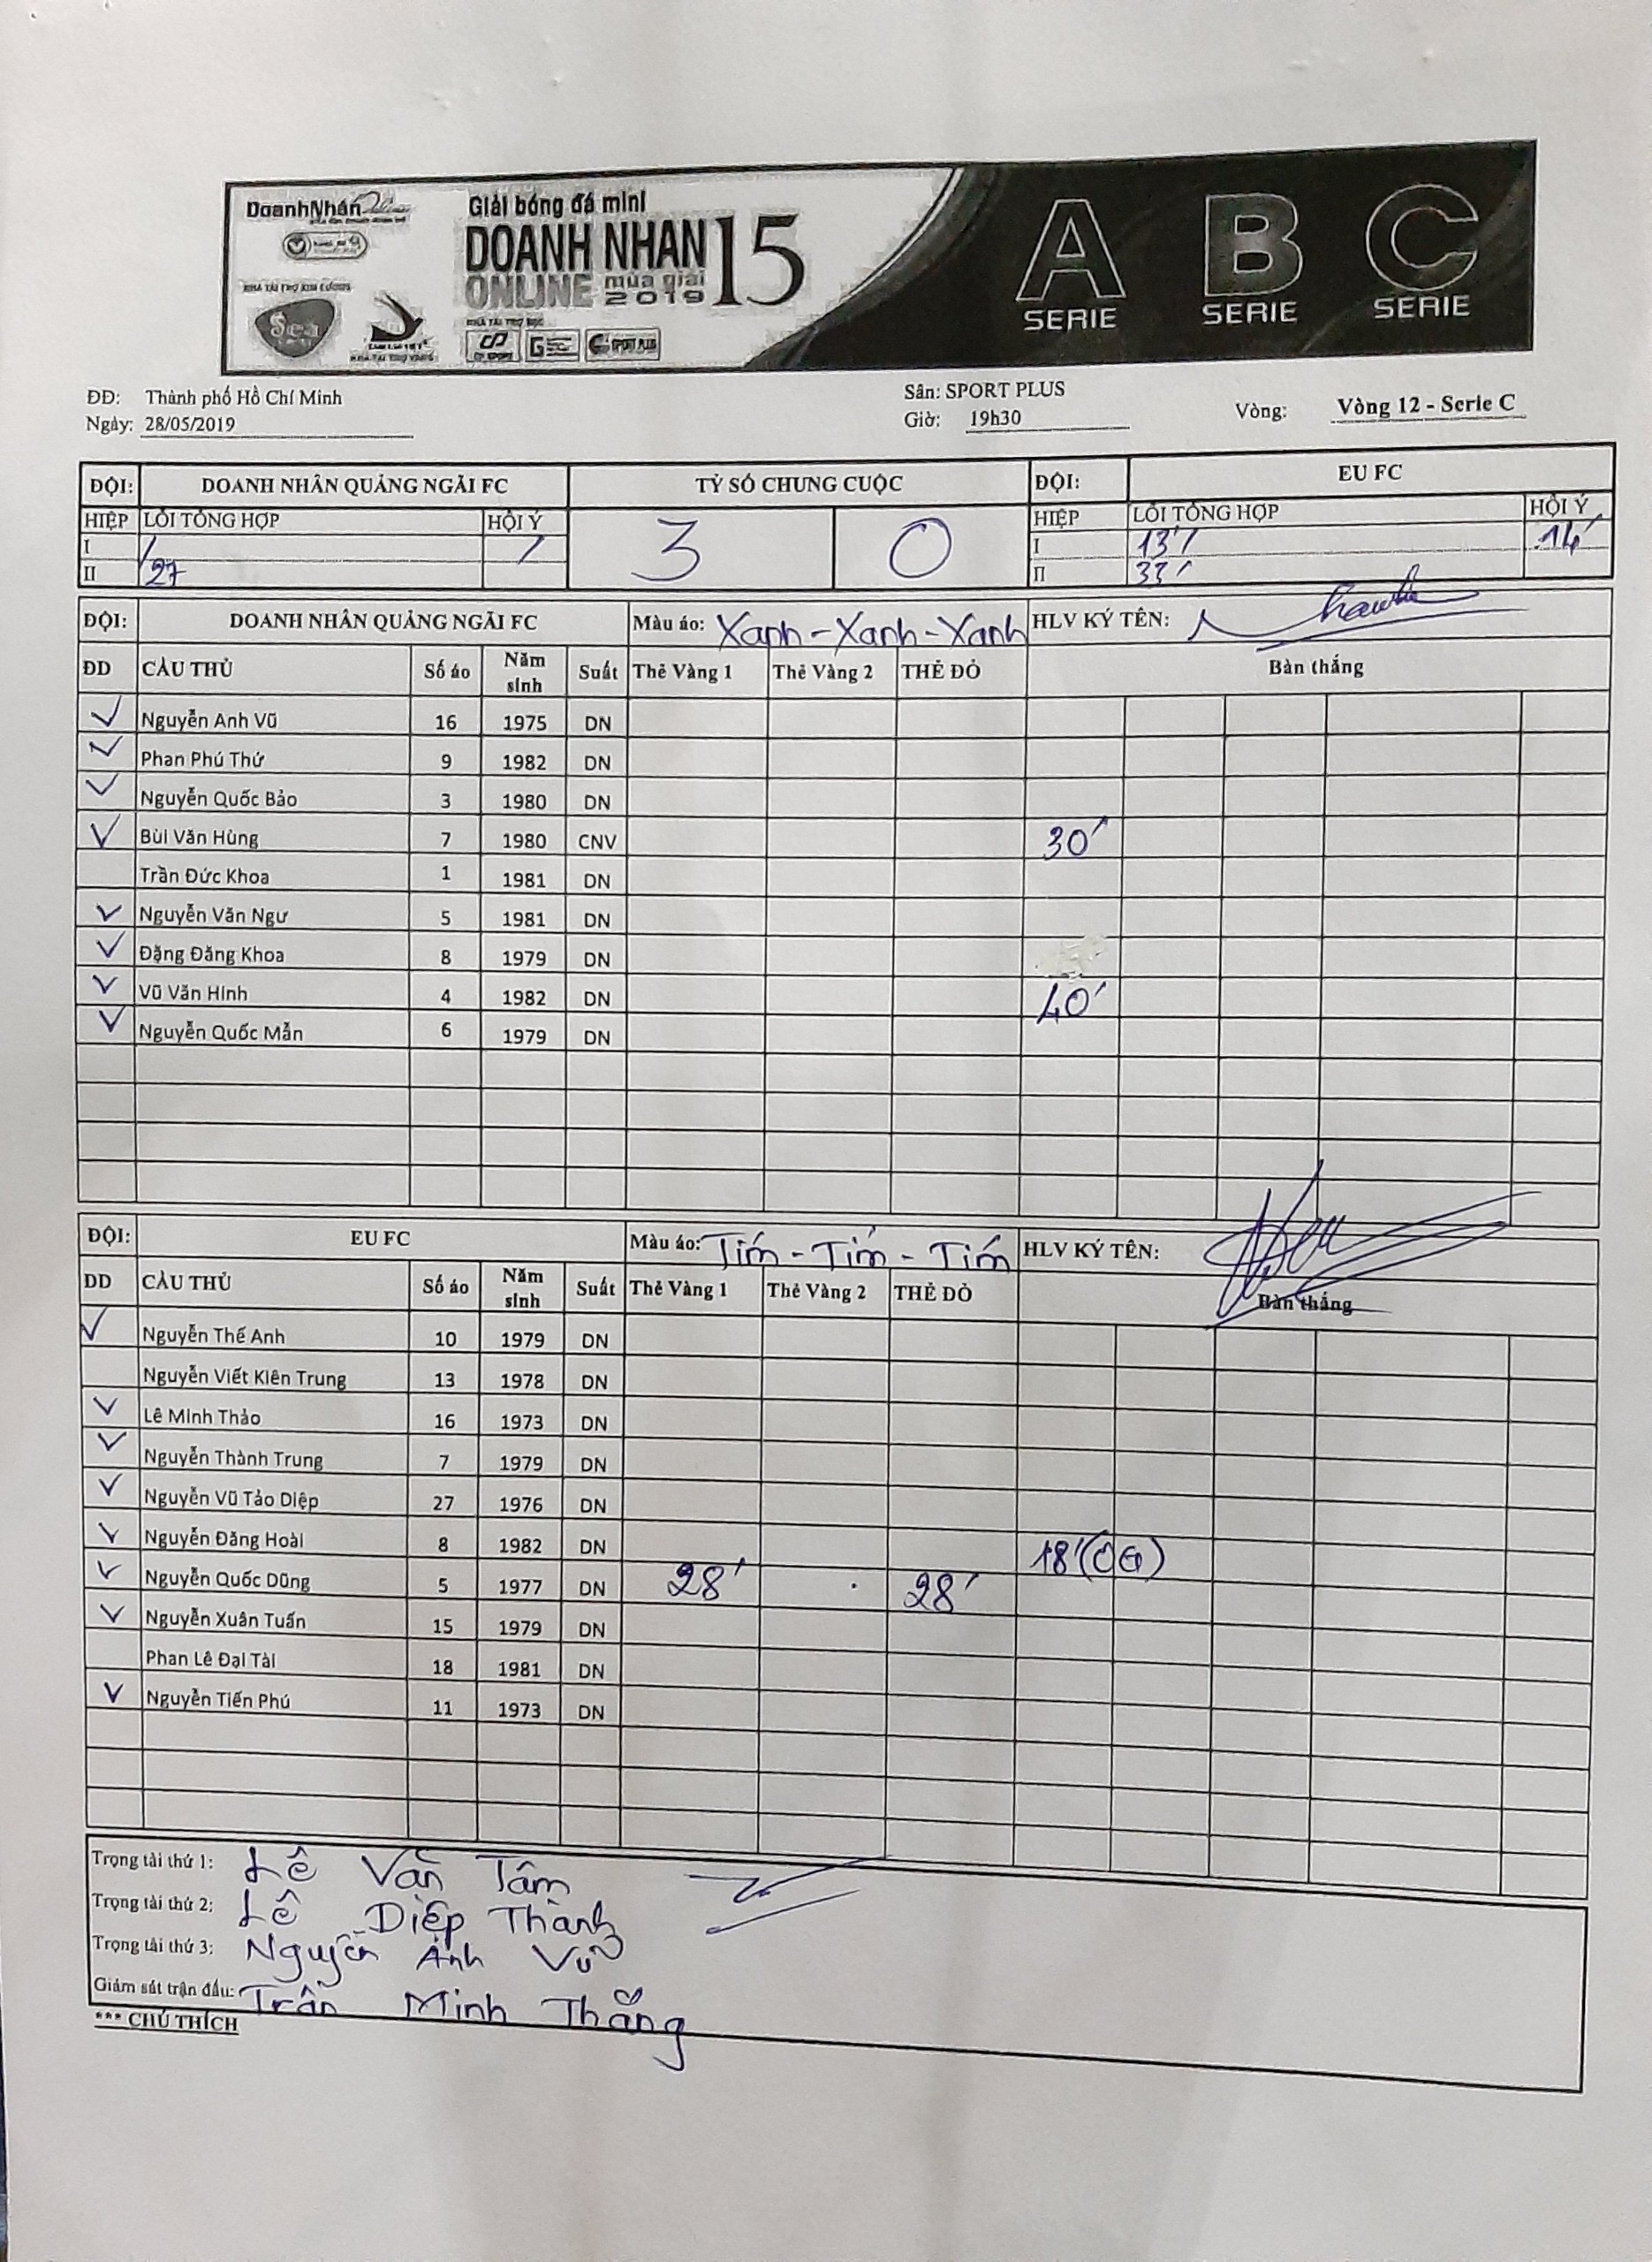 DoanhNhân
Giải bóng đá mini
DOANH NHAN 15
ONLINE mùa giải 2019
NHÀ TÀI TRỢ KIM CƯƠNG
Sea
NHÀ TÀI TRỢ VÀNG
CP SPORT
SPORT PLUS
A SERIE B SERIE C SERIE
ĐĐ: Thành phố Hồ Chí Minh Sân: SPORT PLUS
Ngày: 28/05/2019 Giờ: 19h30 Vòng: Vòng 12 - Serie C
ĐỘI: DOANH NHÂN QUẢNG NGÃI FC TỶ SỐ CHUNG CUỘC ĐỘI: EU FC
HIỆP LỖI TỔNG HỢP HỘI Ý 3 0 HIỆP LỖI TỔNG HỢP HỘI Ý
I / / I 13' / 14'
II 27 II 33'
ĐỘI: DOANH NHÂN QUẢNG NGÃI FC Màu áo: Xanh - Xanh - Xanh HLV KÝ TÊN:
ĐD CẦU THỦ Số áo Năm sinh Suất Thẻ Vàng 1 Thẻ Vàng 2 THẺ ĐỎ Bàn thắng
✓ Nguyễn Anh Vũ 16 1975 DN
✓ Phan Phú Thứ 9 1982 DN
✓ Nguyễn Quốc Bảo 3 1980 DN
✓ Bùi Văn Hùng 7 1980 CNV 30'
Trần Đức Khoa 1 1981 DN
✓ Nguyễn Văn Ngư 5 1981 DN
✓ Đặng Đăng Khoa 8 1979 DN
✓ Vũ Văn Hinh 4 1982 DN 40'
✓ Nguyễn Quốc Mẫn 6 1979 DN
ĐỘI: EU FC Màu áo: Tím - Tím - Tím HLV KÝ TÊN:
DD CẦU THỦ Số áo Năm sinh Suất Thẻ Vàng 1 Thẻ Vàng 2 THẺ ĐỎ Bàn thắng
✓ Nguyễn Thế Anh 10 1979 DN
Nguyễn Viết Kiên Trung 13 1978 DN
✓ Lê Minh Thảo 16 1973 DN
✓ Nguyễn Thành Trung 7 1979 DN
✓ Nguyễn Vũ Tảo Diệp 27 1976 DN
✓ Nguyễn Đăng Hoài 8 1982 DN 18' (OG)
✓ Nguyễn Quốc Dũng 5 1977 DN 28' . 28'
✓ Nguyễn Xuân Tuấn 15 1979 DN
Phan Lê Đại Tài 18 1981 DN
✓ Nguyễn Tiến Phú 11 1973 DN
Trọng tài thứ 1: Lê Văn Tâm
Trọng tài thứ 2: Lê Diệp Thành
Trọng tài thứ 3: Nguyễn Anh Vũ
Giám sát trận đấu: Trần Minh Thắng
*** CHÚ THÍCH